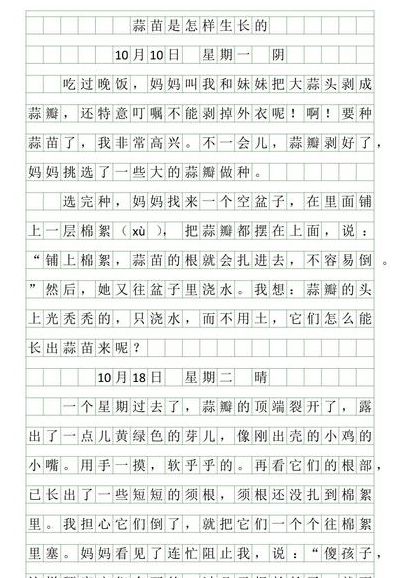 蒜苗是怎样生长的
10月10日 星期一 阴
吃过晚饭，妈妈叫我和妹妹把大蒜头剥成
蒜瓣，还特意叮嘱不能剥掉外衣呢！啊！要种
蒜苗了，我非常高兴。不一会儿，蒜瓣剥好了，
妈妈挑选了一些大的蒜瓣做种。
选完种，妈妈找来一个空盆子，在里面铺
上一层棉絮（xù），把蒜瓣都摆在上面，说：
“铺上棉絮，蒜苗的根就会扎进去，不容易倒。
”然后，她又往盆子里浇水。我想：蒜瓣的头
上光秃秃的，只浇水，而不用土，它们怎么能
长出蒜苗来呢？
10月18日 星期二 晴
一个星期过去了，蒜瓣的顶端裂开了，露
出了一点儿黄绿色的芽儿，像刚出壳的小鸡的
小嘴。用手一摸，软乎乎的。再看它们的根部，
已长出了一些短短的须根，须根还没扎到棉絮
里。我担心它们倒了，就把它们一个个往棉絮
里塞。妈妈看见了连忙阻止我，说：“傻孩子，